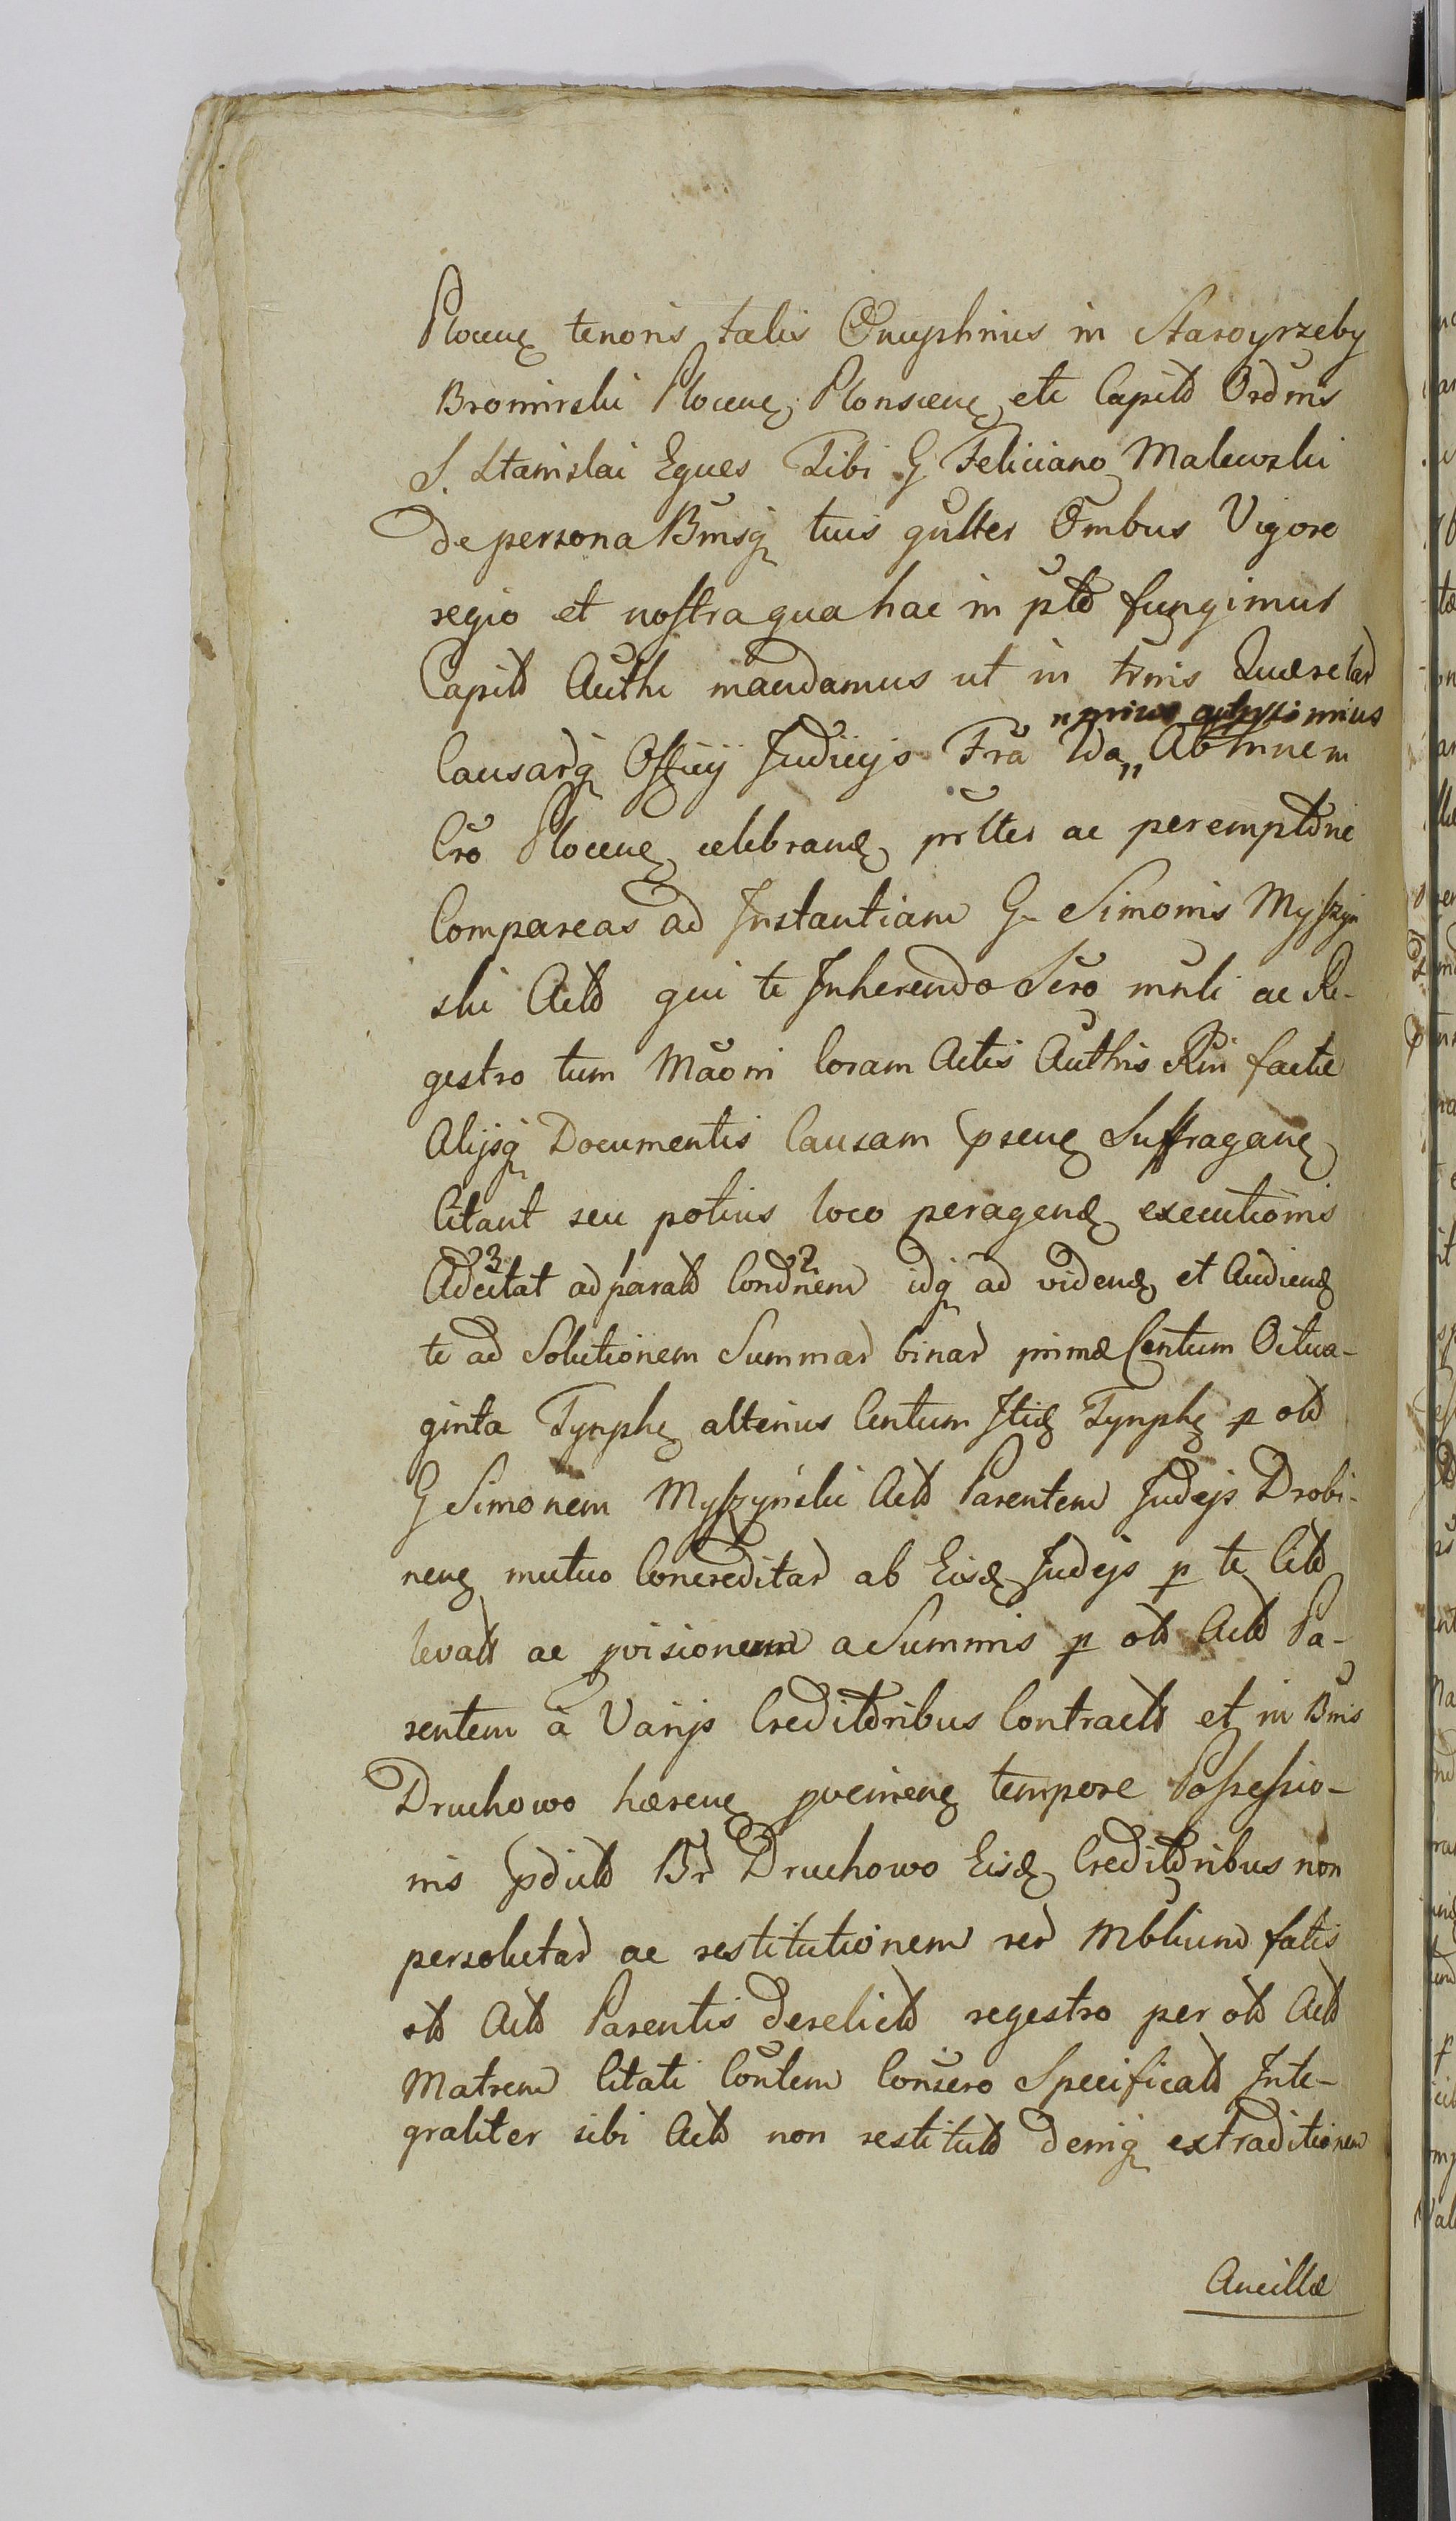 Plocen tenoris talis Onuphrius in Starogrzeby
Bromirski Plocen, Plonscen etc Capit Ordinis
S. Stanislai Eques Tibi G Feliciano Malewski
de persona Bnisq tuis gnlter Ombus Vigore
regio et nostra qua hac in pte fungimur
Capit Authe mandamus ut in trmis Querelar
Causarq Officy Judicys Fra 2da Abhinem
Cro Plocen celebrand prlter ac peremptorie
Compareas ad Instantiam G Simonis Myszyn
ski Act qui te Inherendo Scro mnli ac Re-
gestro tum Maoni Coram Actis Authis Rni factæ
Alijsq Documentis Causam psen Suffragan
Citant seu potius loco peragend executionis
Adcitat ad parat Condnem idq ad vidend et Audiend
te ad Solutionem Summar binar primæ Centum Octua-
ginta Tynph alterius Centum Itid Tynph p ol
G Simonem Myszyński Act Parentem Judejs Drobi-
nen mutuo Concreditar ab Eisd Judejs p te Cit
levat ac pvisionem a Summis p ol Act Pa-
rentem à Varijs Creditoribus Contract et in Bnis
Druchowo hæren pvenien tempore Possessio-
nis pdict Br Druchowo Eisd Creditoribus non
persolutar ac restitutionem rer Mbliund fatis
ol Act Parentis derelict regestro per ol Act
Matrem Citati Contem Conscro Specificat Inte-
graliter sibi Act non restitut deniq extraditionem
Ancillæ